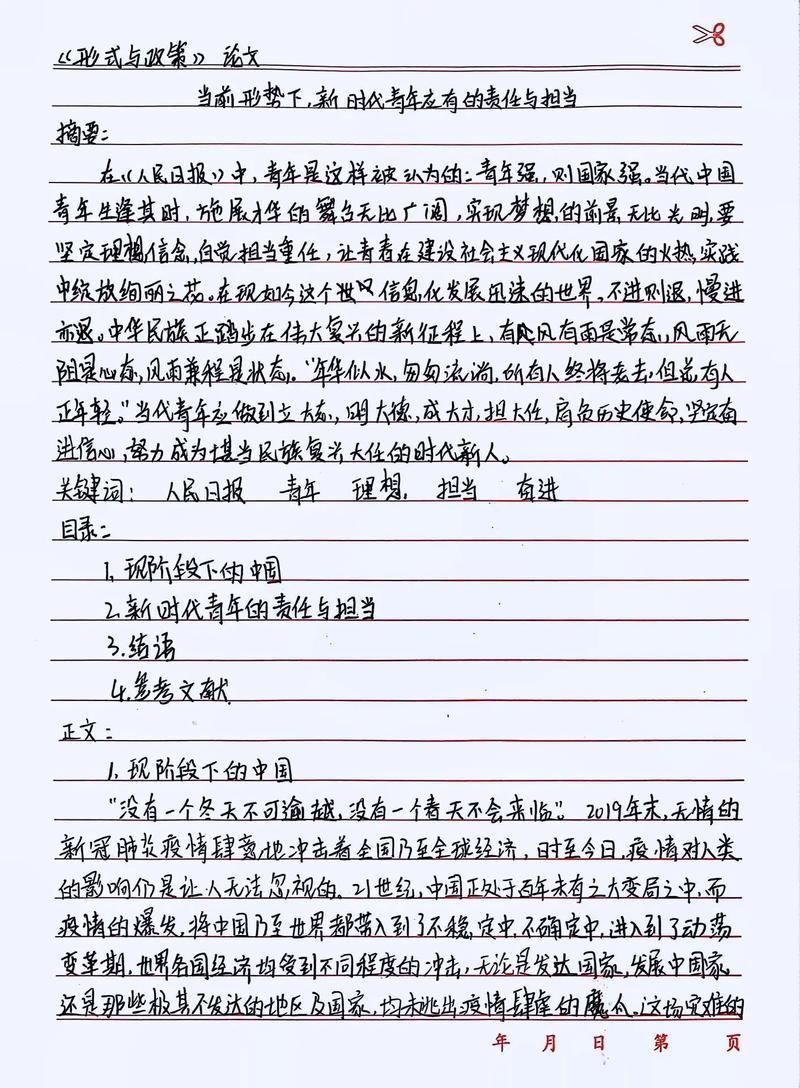 《形式与政策》 论文
当前形势下,新时代青年应有的责任与担当
摘要:
在《人民日报》中,青年是这样被认为的:青年强,则国家强。当代中国
青年生逢其时,施展才华的舞台无比广阔,实现梦想的前景无比光明,要
坚定理想信念,自觉担当重任,让青春在建设社会主义现代化国家的火热实践
中绽放绚丽之花。在现如今这个世 信息化发展迅速的世界,不进则退,慢进
亦退。中华民族正踏步在伟大复兴的新征程上,有风有雨是常态,风雨无
阻是心态,风雨兼程是状态。"年华似水,匆匆流淌,所有人终将老去,但总有人
正年轻。"当代青年应做到立大志,明大德,成大才,担大任,肩负历史使命,坚定奋
进信心,努力成为堪当民族复兴大任的时代新人。
关键词: 人民日报 青年 理想 担当 奋进
目录:
1.现阶段下的中国
2.新时代青年的责任与担当
3.结语
4.参考文献
正文:
1.现阶段下的中国
"没有一个冬天不可逾越,没有一个春天不会来临"。2019年末,无情的
新冠肺炎疫情肆虐地冲击着全国乃至全球经济,时至今日,疫情对人类
的影响仍是让人无法忽视的。21世纪,中国正处于百年未有之大变局之中,而
疫情的爆发,将中国乃至世界都带入到了不稳定中,不确定中,进入到了动荡
变革期,世界各国经济均受到不同程度的冲击,无论是发达国家,发展中国家
还是那些极其不发达的地区及国家,均未逃出疫情肆虐的魔爪。这场灾难的
年 月 日 第 页